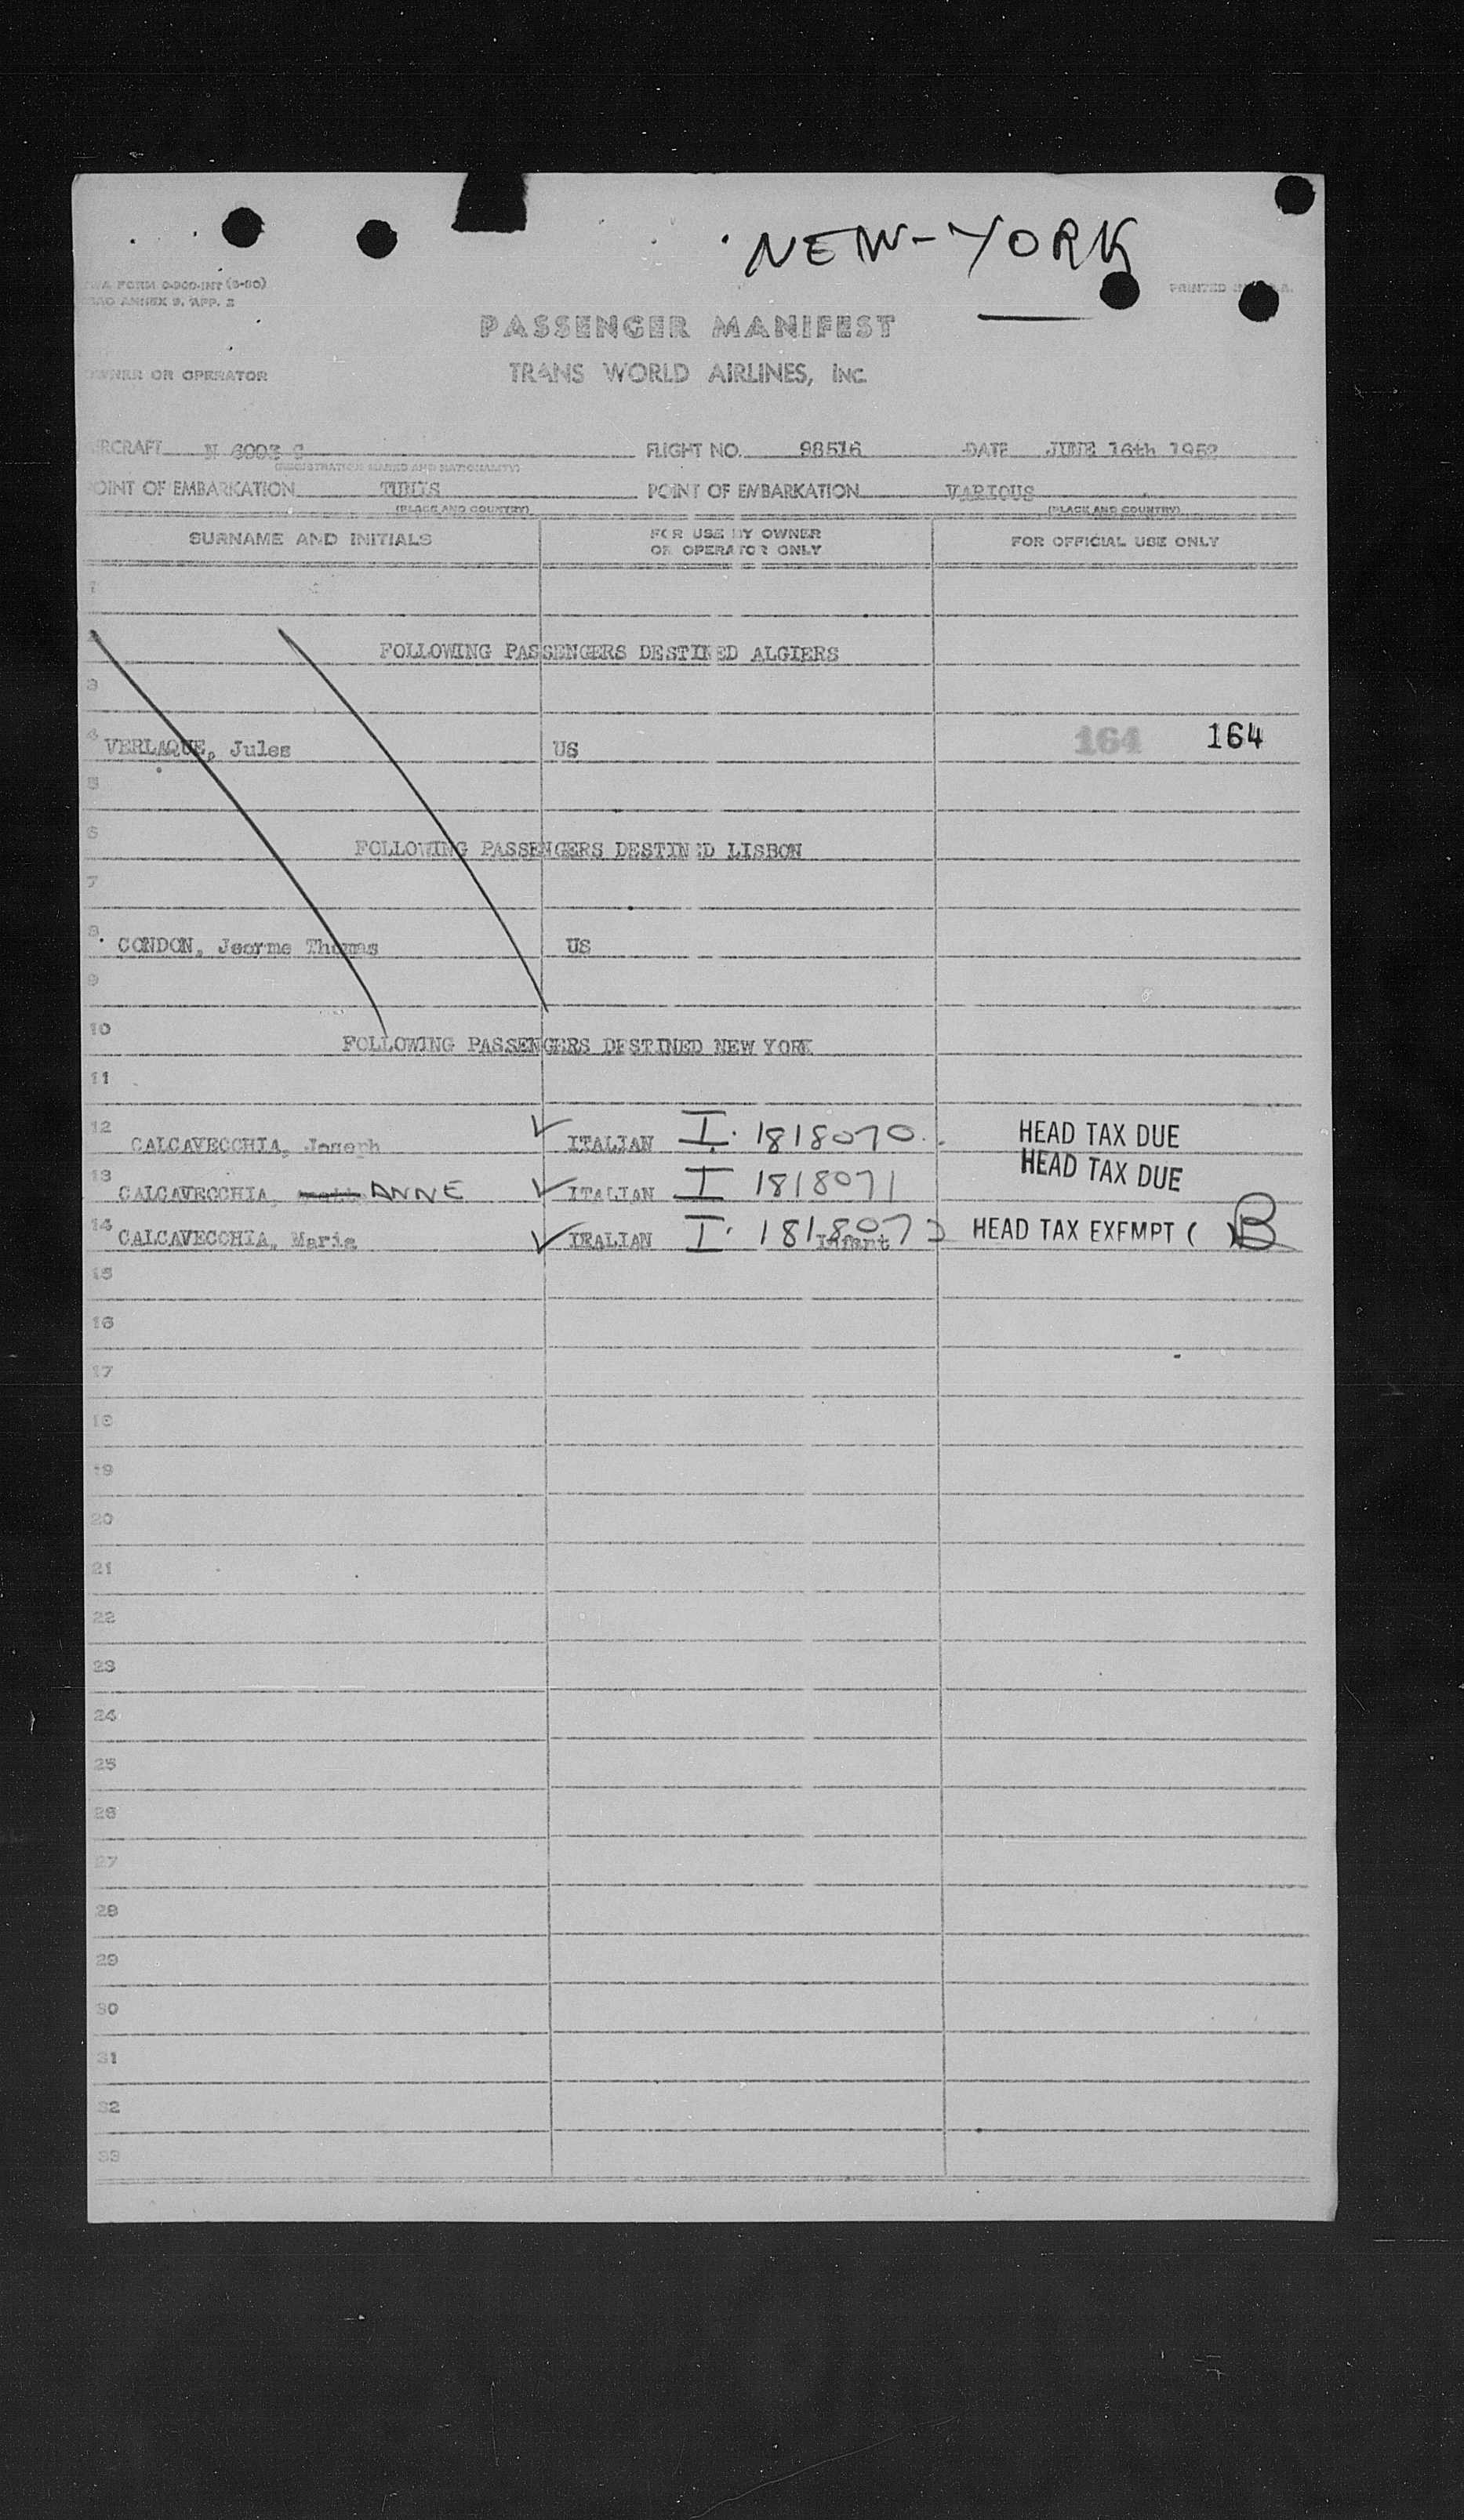 NEW-YORK
TWA FORM 0-900-INT (3-50)
ICAO ANNEX 9, APP. 2
PRINTED IN U.S.A.
PASSENGER MANIFEST
OWNER OR OPERATOR TRANS WORLD AIRLINES, INC.
AIRCRAFT N 6003 C FLIGHT NO. 98516 DATE JUNE 16th 1952
(REGISTRATION MARKS AND NATIONALITY)
POINT OF EMBARKATION TUNIS POINT OF EMBARKATION VARIOUS
(PLACE AND COUNTRY) (PLACE AND COUNTRY)
SURNAME AND INITIALS FOR USE BY OWNER OR OPERATOR ONLY FOR OFFICIAL USE ONLY
1
2 FOLLOWING PASSENGERS DESTINED ALGIERS
3
4 VERLAQUE, Jules US 164 164
5
6 FOLLOWING PASSENGERS DESTINED LISBON
7
8 CONDON, Jeorme Thomas US
9
10 FOLLOWING PASSENGERS DESTINED NEW YORK
11
12 CALCAVECCHIA, Joseph ITALIAN I. 1818070 HEAD TAX DUE
13 CALCAVECCHIA, ANNE ITALIAN I 1818071 HEAD TAX DUE
14 CALCAVECCHIA, Maria ITALIAN I. Infant HEAD TAX EXEMPT ( ) B
15
16
17
18
19
20
21
22
23
24
25
26
27
28
29
30
31
32
33